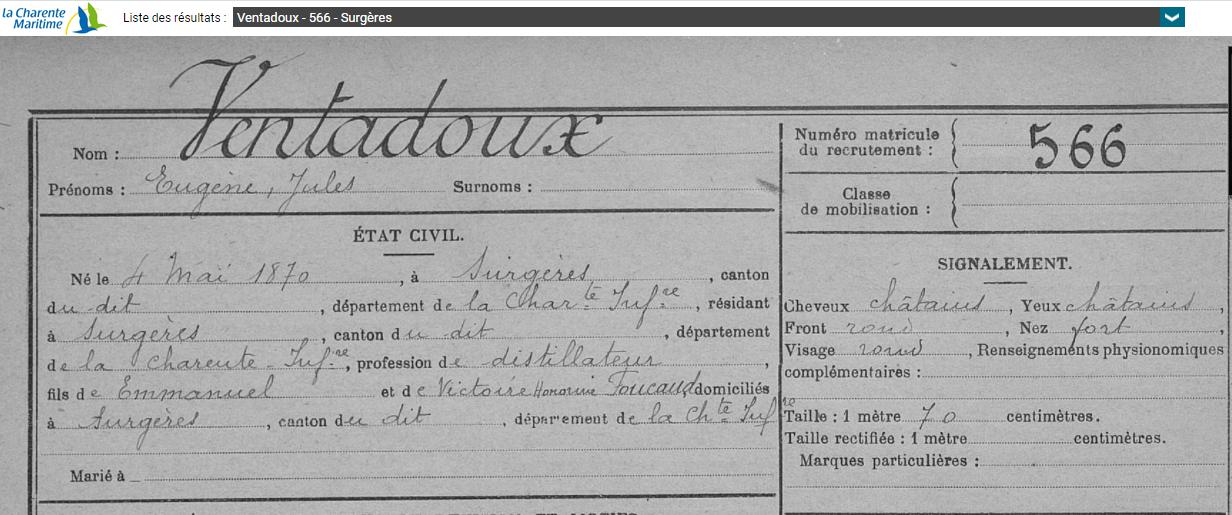 la Charente
Maritime
Liste des résultats : Ventadoux - 566 - Surgères
Nom : Ventadoux
Prénoms : Eugène, Jules Surnoms :
Numéro matricule
du recrutement : 566
Classe
de mobilisation :
ÉTAT CIVIL.
Né le 4 Mai 1870, à Surgères, canton
du dit, département de la Charte Infre, résidant
à Surgères, canton du dit, département
de la Charente Infre, profession de distillateur,
fils de Emmanuel et de Victoire Honorine Foucaud, domiciliés
à Surgères, canton du dit, département de la Chte Infre
Marié à
SIGNALEMENT.
Cheveux châtains, Yeux châtains,
Front rond, Nez fort,
Visage rond, Renseignements physionomiques
complémentaires :
Taille : 1 mètre 70 centimètres.
Taille rectifiée : 1 mètre centimètres.
Marques particulières :